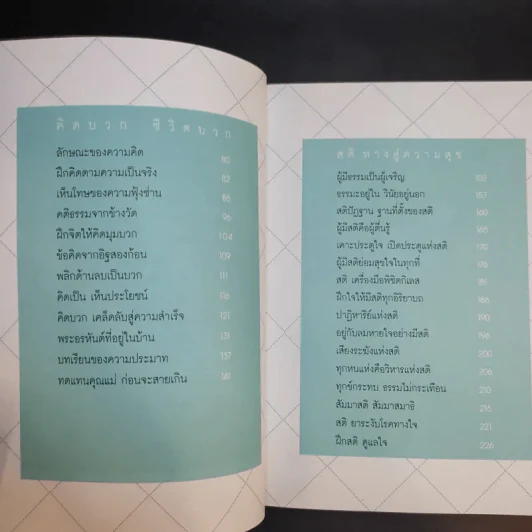 คิดบวก ชีวิตบวก
ลักษณะของความคิด 80
ฝึกคิดตามความเป็นจริง 82
เห็นโทษของความฟุ้งซ่าน 86
คติธรรมจากข้างวัด 96
ฝึกจิตให้คิดมุมบวก 104
ข้อคิดจากอิฐสองก้อน 109
พลิกด้านลบเป็นบวก 111
คิดเป็น เห็นประโยชน์ 116
คิดบวก เคล็ดลับสู่ความสำเร็จ 121
พระอรหันต์ที่อยู่ในบ้าน 131
บทเรียนของความประมาท 137
ทดแทนคุณแม่ ก่อนจะสายเกิน 141
สติ ทางสู่ความสุข
ผู้มีธรรมเป็นผู้เจริญ 152
ธรรมะอยู่ใน วินัยอยู่นอก 157
สติปัฏฐาน ฐานที่ตั้งของสติ 160
ผู้มีสติคือผู้ตื่นรู้ 165
เคาะประตูใจ เปิดประตูแห่งสติ 170
ผู้มีสติย่อมสุขใจในทุกที่ 176
สติ เครื่องมือพิชิตกิเลส 181
ฝึกใจให้มีสติทุกอิริยาบถ 186
ปาฏิหาริย์แห่งสติ 190
อยู่กับลมหายใจอย่างมีสติ 196
เสียงระฆังแห่งสติ 200
ทุกหนแห่งคือวิหารแห่งสติ 206
ทุกข์กระทบ ธรรมไม่กระเทือน 210
สัมมาสติ สัมมาสมาธิ 216
สติ ยาระงับโรคทางใจ 221
ฝึกสติ ดูแลใจ 226